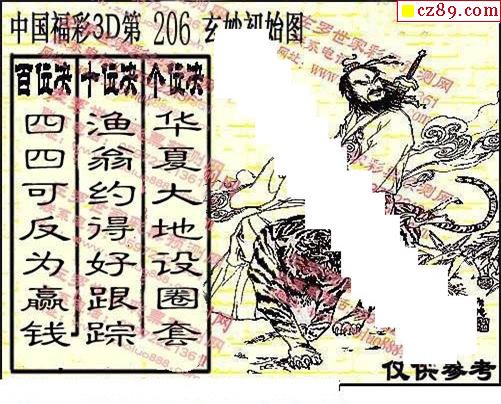 cz89.com
中国福彩3D第 206 玄妙初始图
百位决 十位决 个位决
华夏大地设圈套
渔翁约得好跟踪
四四可反为赢钱
仅供参考